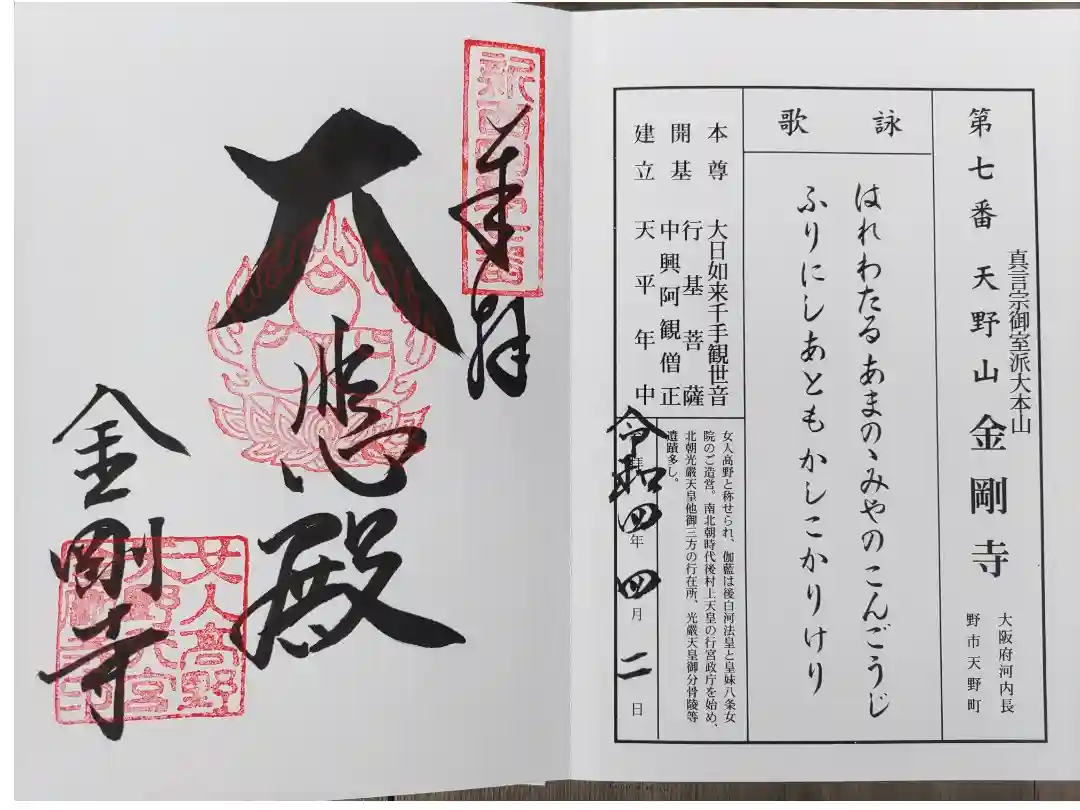 真言宗御室派大本山
第七番 天野山 金剛寺
大阪府河内長
野市天野町
詠歌
はれわたるあまのゝみやのこんごうじ
ふりにしあともかしこかりけり
本尊 大日如来千手観世音
開基 行基菩薩
中興阿観僧正
建立 天平年中
女人高野と称せられ、伽藍は後白河法皇と皇妹八条女
院のご造営。南北朝時代後村上天皇の行宮政庁を始め、
北朝光厳天皇他御三方の行在所、光厳天皇御分骨陵等
遺蹟多し。
令和四年四月二日
奉拝
大悲殿
女人高野
金剛寺